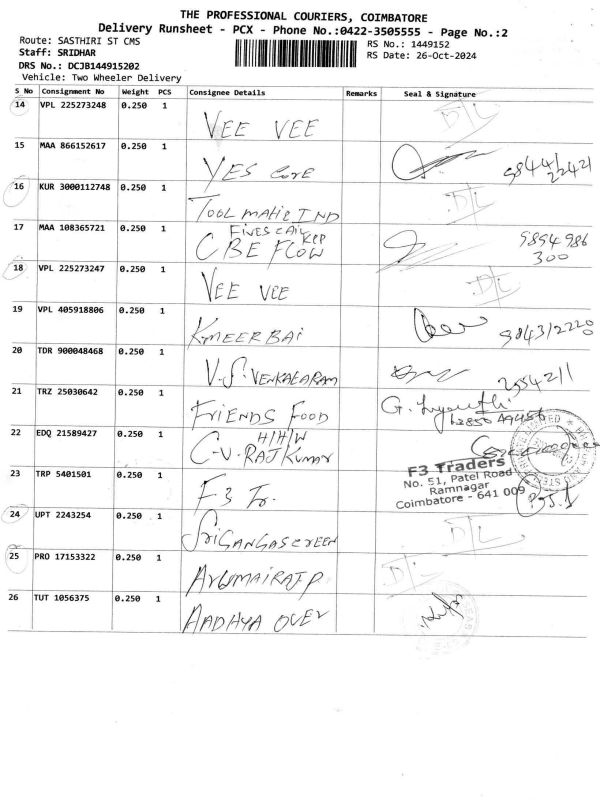 THE PROFESSIONAL COURIERS, COIMBATORE
Delivery Runsheet - PCX - Phone No.:0422-3505555 - Page No.:2
Route: SASTHIRI ST CMS
RS No.: 1449152
Staff: SRIDHAR
RS Date: 26-Oct-2024
DRS No.: DCJB144915202
Vehicle: Two Wheeler Delivery
S No Consignment No Weight PCS Consignee Details Remarks Seal & Signature
14 VPL 225273248 0.250 1 VEE VEE D/L
15 MAA 866152617 0.250 1 YES Core
16 KUR 3000112748 0.250 1 TOOL MAHE IND D/L
17 MAA 108365721 0.250 1 CBE FLOW 9894986
300
18 VPL 225273247 0.250 1 VEE VEE D/L
19 VPL 405918806 0.250 1 KMEERBAI 9843/2220
20 TDR 900048468 0.250 1 V.S. VENKATARAM
21 TRZ 25030642 0.250 1 FRIENDS FOOD
22 EDQ 21589427 0.250 1 H/H/W
C-V. RAJKUMAR
23 TRP 5401501 0.250 1 F3 Tr.
F3 Traders
No. 51, Patel Road
Ramnagar
Coimbatore - 641 009
24 UPT 2243254 0.250 1 SRIGANGASCREEN D/L
25 PRO 17153322 0.250 1 D/L
26 TUT 1056375 0.250 1 AADHYA OVER